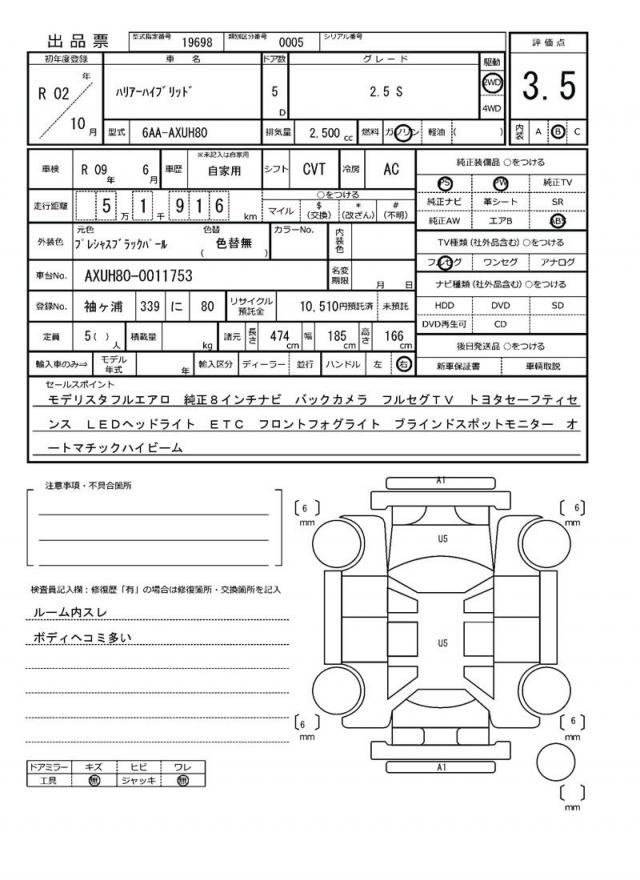 出品票
型式指定番号 19698 類別区分番号 0005 シリアル番号
評価点
3.5
内装 A B C
初年度登録 車名 ドア数 グレード 駆動
R 02 年 10 月
ハリアーハイブリッド 5 D 2.5 S 2WD 4WD
型式 6AA-AXUH80 排気量 2,500 cc 燃料 ガソリン 軽油 ( )
車検 R 09 年 6 月 車歴 ※未記入は自家用 自家用 シフト CVT 冷房 AC
走行距離 5 万 1 千 9 1 6 km
○をつける
マイル $ (交換) * (改ざん) # (不明)
外装色 元色 プレシャスブラックパール 色替 ( 色替無 ) カラーNo. 内装色
車台No. AXUH80-0011753 名変期限 月 日
登録No. 袖ヶ浦 339 に 80 リサイクル預託金 10,510円預託済 未預託
定員 5( ) 人 積載量 kg 諸元 長さ 474 cm 幅 185 cm 高さ 166 cm
輸入車のみ⇒ モデル年式 年 輸入区分 ディーラー 並行 ハンドル 左 右
純正装備品 ○をつける
PS PW 純正TV
純正ナビ 革シート SR
純正AW エアB ABS
TV種類 (社外品含む) ○をつける
フルセグ ワンセグ アナログ
ナビ種類 (社外品含む) ○をつける
HDD DVD SD
DVD再生可 CD
後日発送品 ○をつける
新車保証書 車輌取説
セールスポイント
モデリスタフルエアロ 純正8インチナビ バックカメラ フルセグTV トヨタセーフティセ
ンス LEDヘッドライト ETC フロントフォグライト ブラインドスポットモニター オ
ートマチックハイビーム
注意事項・不具合箇所
検査員記入欄：修復歴「有」の場合は修復箇所・交換箇所を記入
ルーム内スレ
ボディヘコミ多い
ドアミラー キズ ヒビ ワレ
工具 無 ジャッキ 無
A1
[ 6 ] mm
[ 6 ] mm
U5
U5
[ 6 ] mm
[ 6 ] mm
A1
[ ] mm